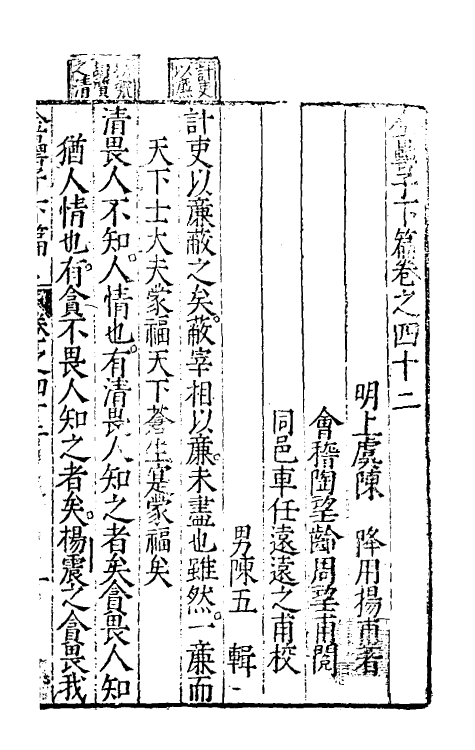 金罍子下篇卷之四十二
明上虞陳　降用揚甫著
會稽陶望齡周望甫閱
同邑車任遠遠之甫校
男陳五　輯
計吏以廉蔽之矣。蔽宰相以廉。未盡也雖然。一廉而
天下士大夫蒙福天下蒼生寔蒙福矣
清畏人不知。人情也。有清畏人知之者矣貪畏人知
猶人情也。有貪不畏人知之者矣。楊震之貪畏我
計吏
以廉
之清
金罍子下篇
卷之四十二